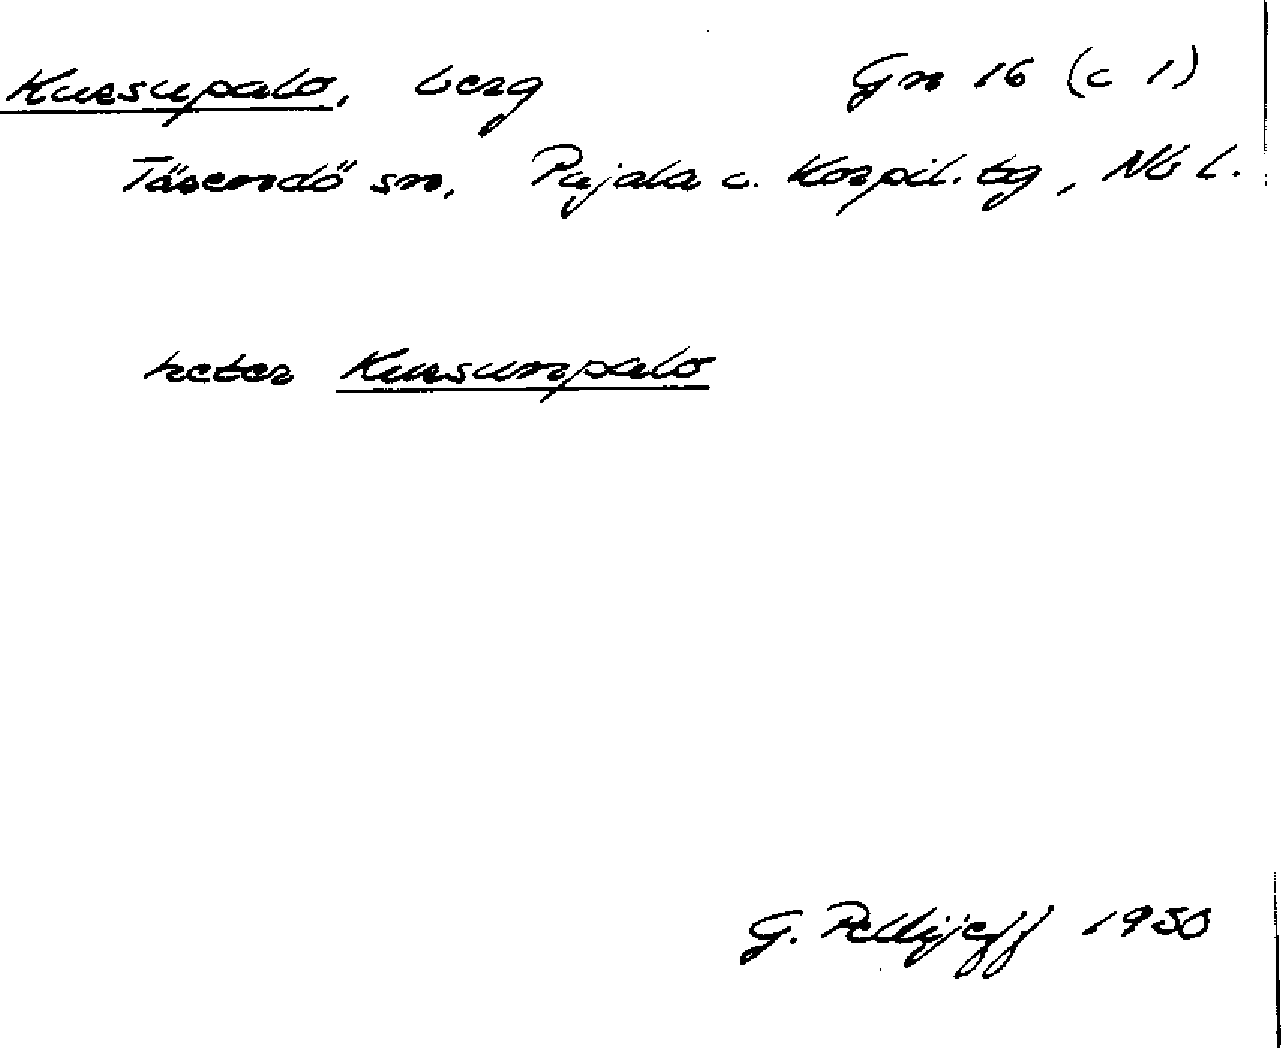 Kursupalo, berg Gn 16 (c 1)
Tärendö sn, Pajala c. Korpil. tg, Nb L.
heter Kursunpalo
G. Pellijeff 1950